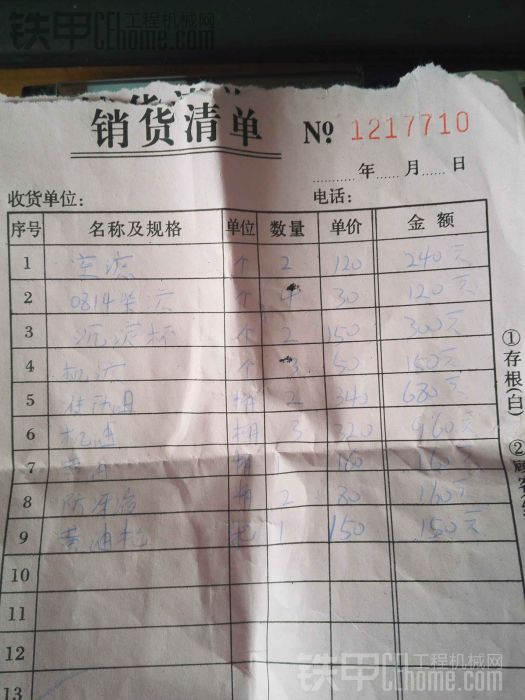 铁甲 工程机械网 CEhome.com
销货清单 № 1217710
年 月 日
收货单位: 电话:
序号 名称及规格 单位 数量 单价 金额
1 空滤 个 2 120 240元
2 0814柴滤 个 4 30 120元
3 沉淀杯 个 2 150 300元
4 机滤 个 3 50 150元
5 传动油 桶 2 340 680元
6 机油 桶 3 320 960元
7 黄油 桶 1 160 160元
8 2 30
9 黄油枪 把 1 150 150元
10
11
12
13
①存根(白)
②
铁甲 工程机械网 CEhome.com